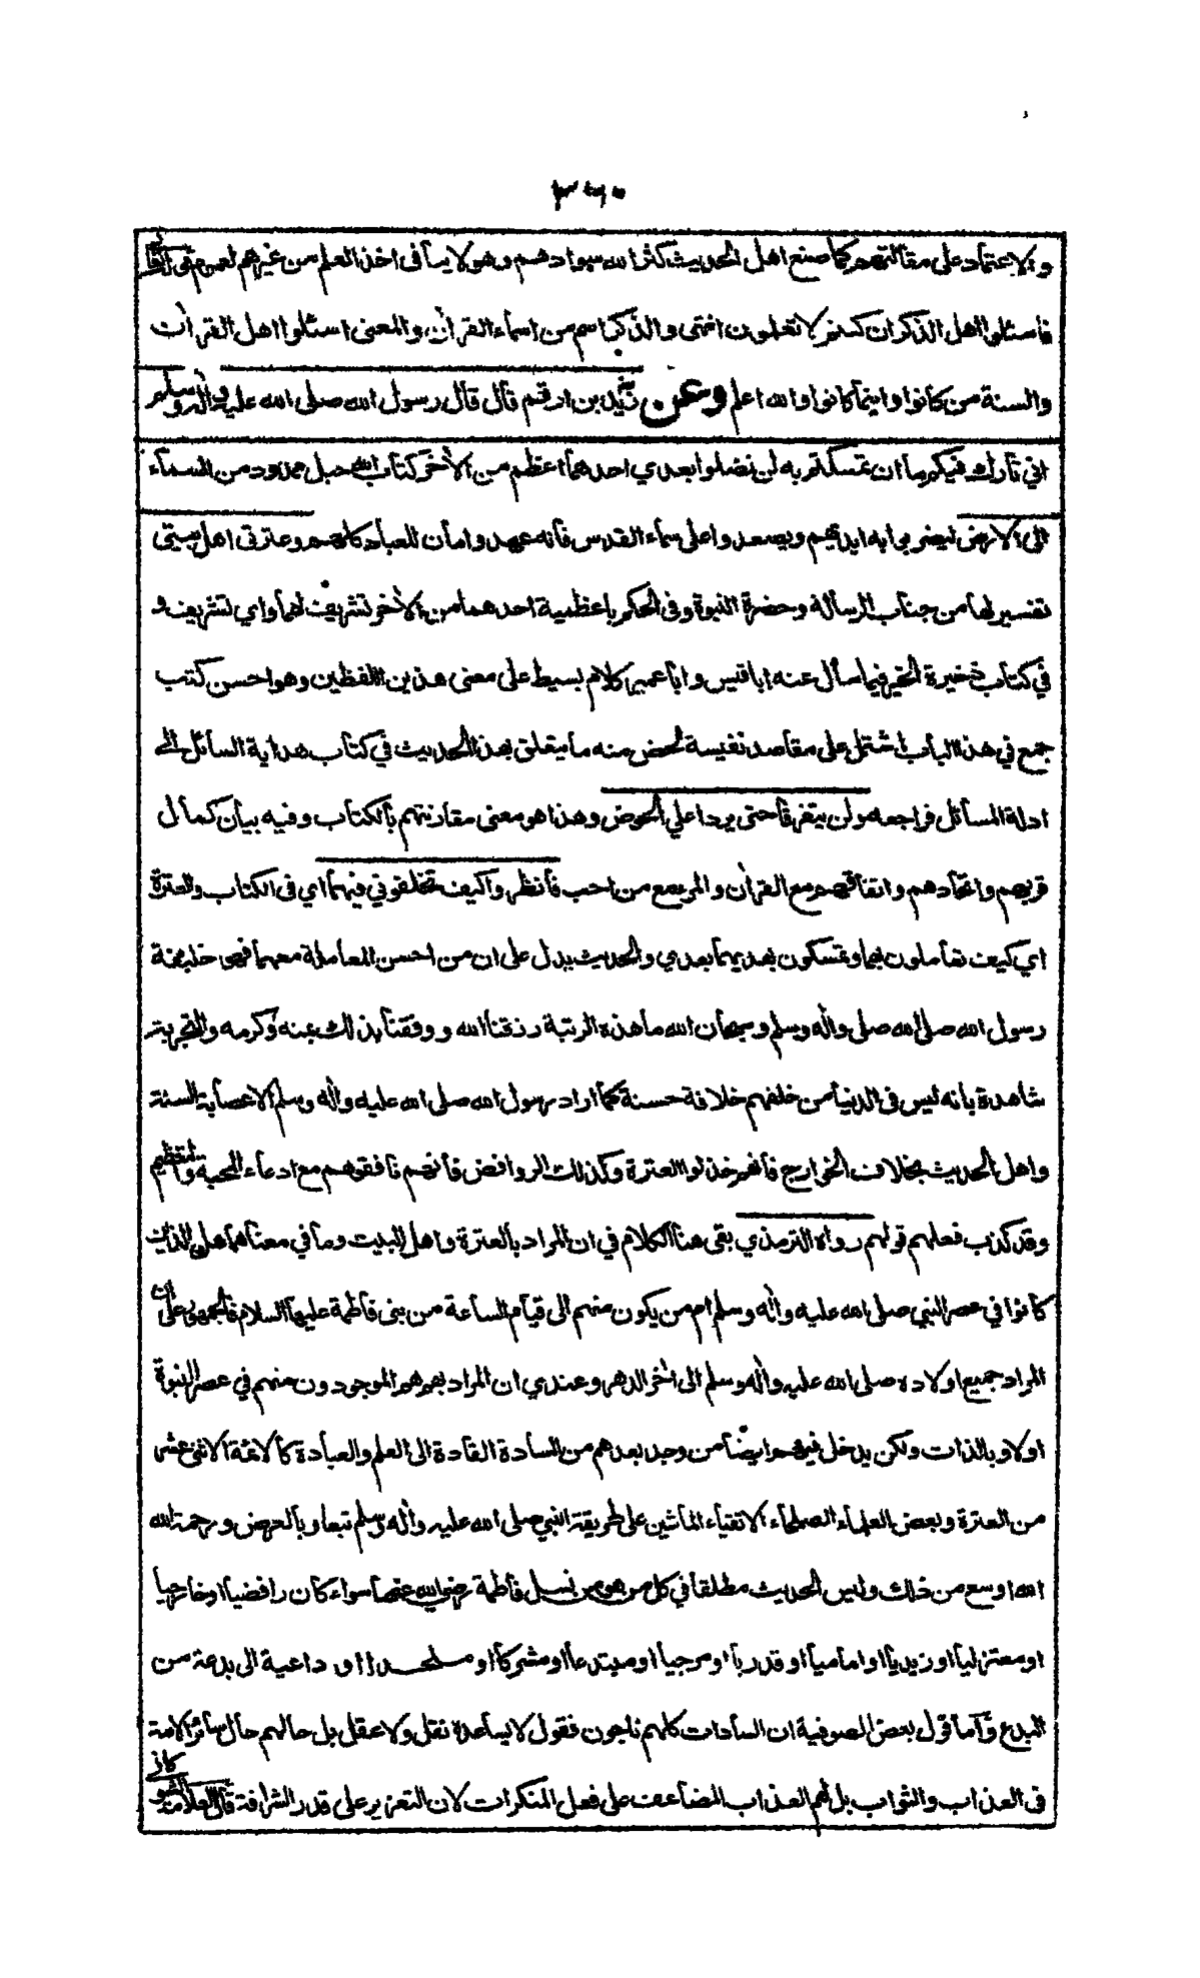 ٣٦٠
والاعتماد على مقالتهم كما صنع اهل الحديث كثر الله سوادهم وهو لا ينافى اخذ العلم من غيرهم لعموم قوله
فاسئلوا اهل الذكر ان كنتم لا تعلمون انتهى والذكر اسم من اسماء القرآن والمعنى اسئلوا اهل القرآن
والسنة من كانوا واينما كانوا والله اعلم وعن زيد بن ارقم قال قال رسول الله صلى الله عليه وآله وسلم
اني تارك فيكم ما ان تمسكتم به لن تضلوا بعدي احدهما اعظم من الآخر كتاب الله حبل ممدود من السماء
الى الارض ليضربوا به ايديهم ويصعدوا على سماء القدس فانه عهد وامان للعباد كلهم وعترتي اهل بيتي
تفسير لها من جناب الرسالة وحضرة النبوة وفى الحكم باعظمية احدهما من الآخر تشريف لهما واي تشريف و
في كتاب ذخيرة الخير فيما سأل عنه ابا قيس وابا عمير كلام بسيط على معنى هذين اللفظين وهو احسن كتب
جمع في هذا الباب اشتمل على مقاصد نفيسة لخص منه ما يتعلق بهذا الحديث في كتاب هداية السائل الى
ادلة المسائل فراجعه ولن يتفرقا حتى يردا علي الحوض وهذا هو معنى مقارنتهم بالكتاب وفيه بيان كمال
قربهم واتحادهم واتفاقهم مع القرآن والمرء مع من احب فانظروا كيف تخلفوني فيهما اي في الكتاب والعترة
اي كيف تعاملون بهما وتمسكون بهديهما بعدي والحديث يدل على ان من احسن المعاملة معهما فهو خليفة
رسول الله صلى الله صلى وآله وسلم وسبحان الله ما هذه الرتبة رزقنا الله ووفقنا بذلك بمنه وكرمه والتجربة
شاهدة بانه ليس فى الدنيا من خلفهم خلافة حسنة كما اراد رسول الله صلى الله عليه وآله وسلم الا عصابة السنة
واهل الحديث بخلاف الخوارج فانهم خذلوا العترة وكذلك الروافض فانهم نافقوهم مع ادعاء المحبة والتعظيم
وقد كذب فعلهم قولهم رواه الترمذي بقى هنا الكلام في ان المراد بالعترة واهل البيت وما في معناهما هل الذين
كانوا في عصر النبي صلى الله عليه وآله وسلم ام من يكون منهم الى قيام الساعة من بنى فاطمة عليها السلام فالجمهور على ان
المراد جميع اولاده صلى الله عليه وآله وسلم الى آخر الدهر وعندي ان المراد بهم هم الموجودون منهم في عصر النبوة
اولا وبالذات ولكن يدخل فيهم ايضا من وجد بعدهم من السادة القادة الى العلم والعبادة كالائمة الاثنى عشر
من العترة وبعض العلماء الصلحاء الاتقياء الماشين على طريقة النبي صلى الله عليه وآله وسلم تبعا وبالعرض ورحمة الله
الله اوسع من ذلك وليس الحديث مطلقا في كل من هو من نسل فاطمة رضي الله عنها سواء كان رافضيا او خارجيا
او معتزليا او زيديا او اماميا او قدريا او مرجيا او مبتدعا او مشركا او ملحدا او داعية الى بدعة من
البدع واما قول بعض الصوفية ان السادات كلهم ناجون فقول لا يساعده نقل ولا عقل بل حالهم حال سائر الامة
فى العذاب والثواب بل لهم العذاب المضاعف على فعل المنكرات لان التعزير على قدر الشرافة قال العلامة الشوكاني